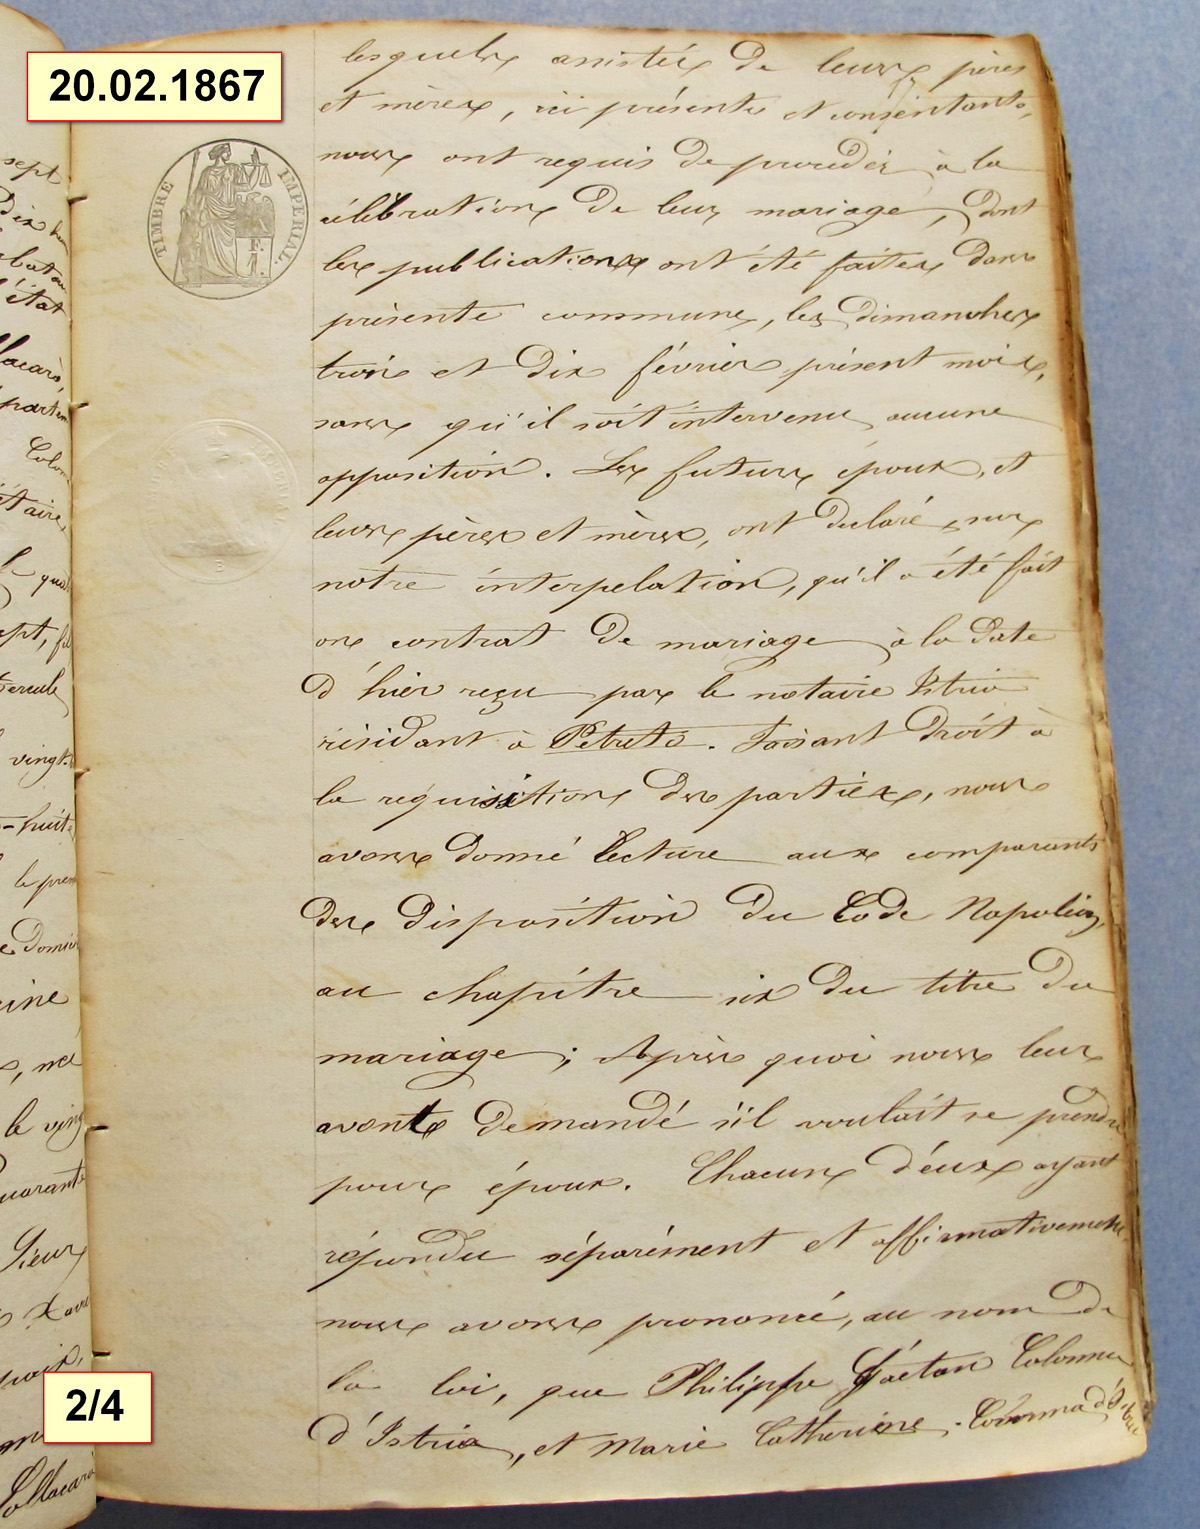 20.02.1867
sept
Dix
l'état
qua
sept, fil
vingt-
-huit
le prem
Domici
le ving
quarante
Sieur
Xavi
Collacara
TIMBRE IMPERIAL.
F.
1.
lesquels assistés de leurs pères
et mères, ici présents et consentants,
nous ont requis de procéder à la
célébration de leur mariage, dont
les publications ont été faites dans
présente commune, les dimanches
trois et dix février présent mois,
sans qu'il soit intervenu aucune
opposition. Les futurs époux, et
leurs pères et mères, ont déclaré, sur
notre interpelation, qu'il a été fait
on contrat de mariage à la date
d'hier reçu par le notaire Istria
résidant à Petreto. Faisant droit à
la requisition des parties, nous
avons donné lecture aux comparants
des disposition du Code Napoléon,
au chapitre six du titre du
mariage ; Après quoi nous leur
avont demandé s'il voulait se prendre
pour époux. Chacun d'eux ayant
répondu séparément et affirmativement
nous avons prononcé, au nom de
la loi, que Philippe Gáetan Colonna
d'Istria, et Marie Catherine Colonna d'Istria
2/4